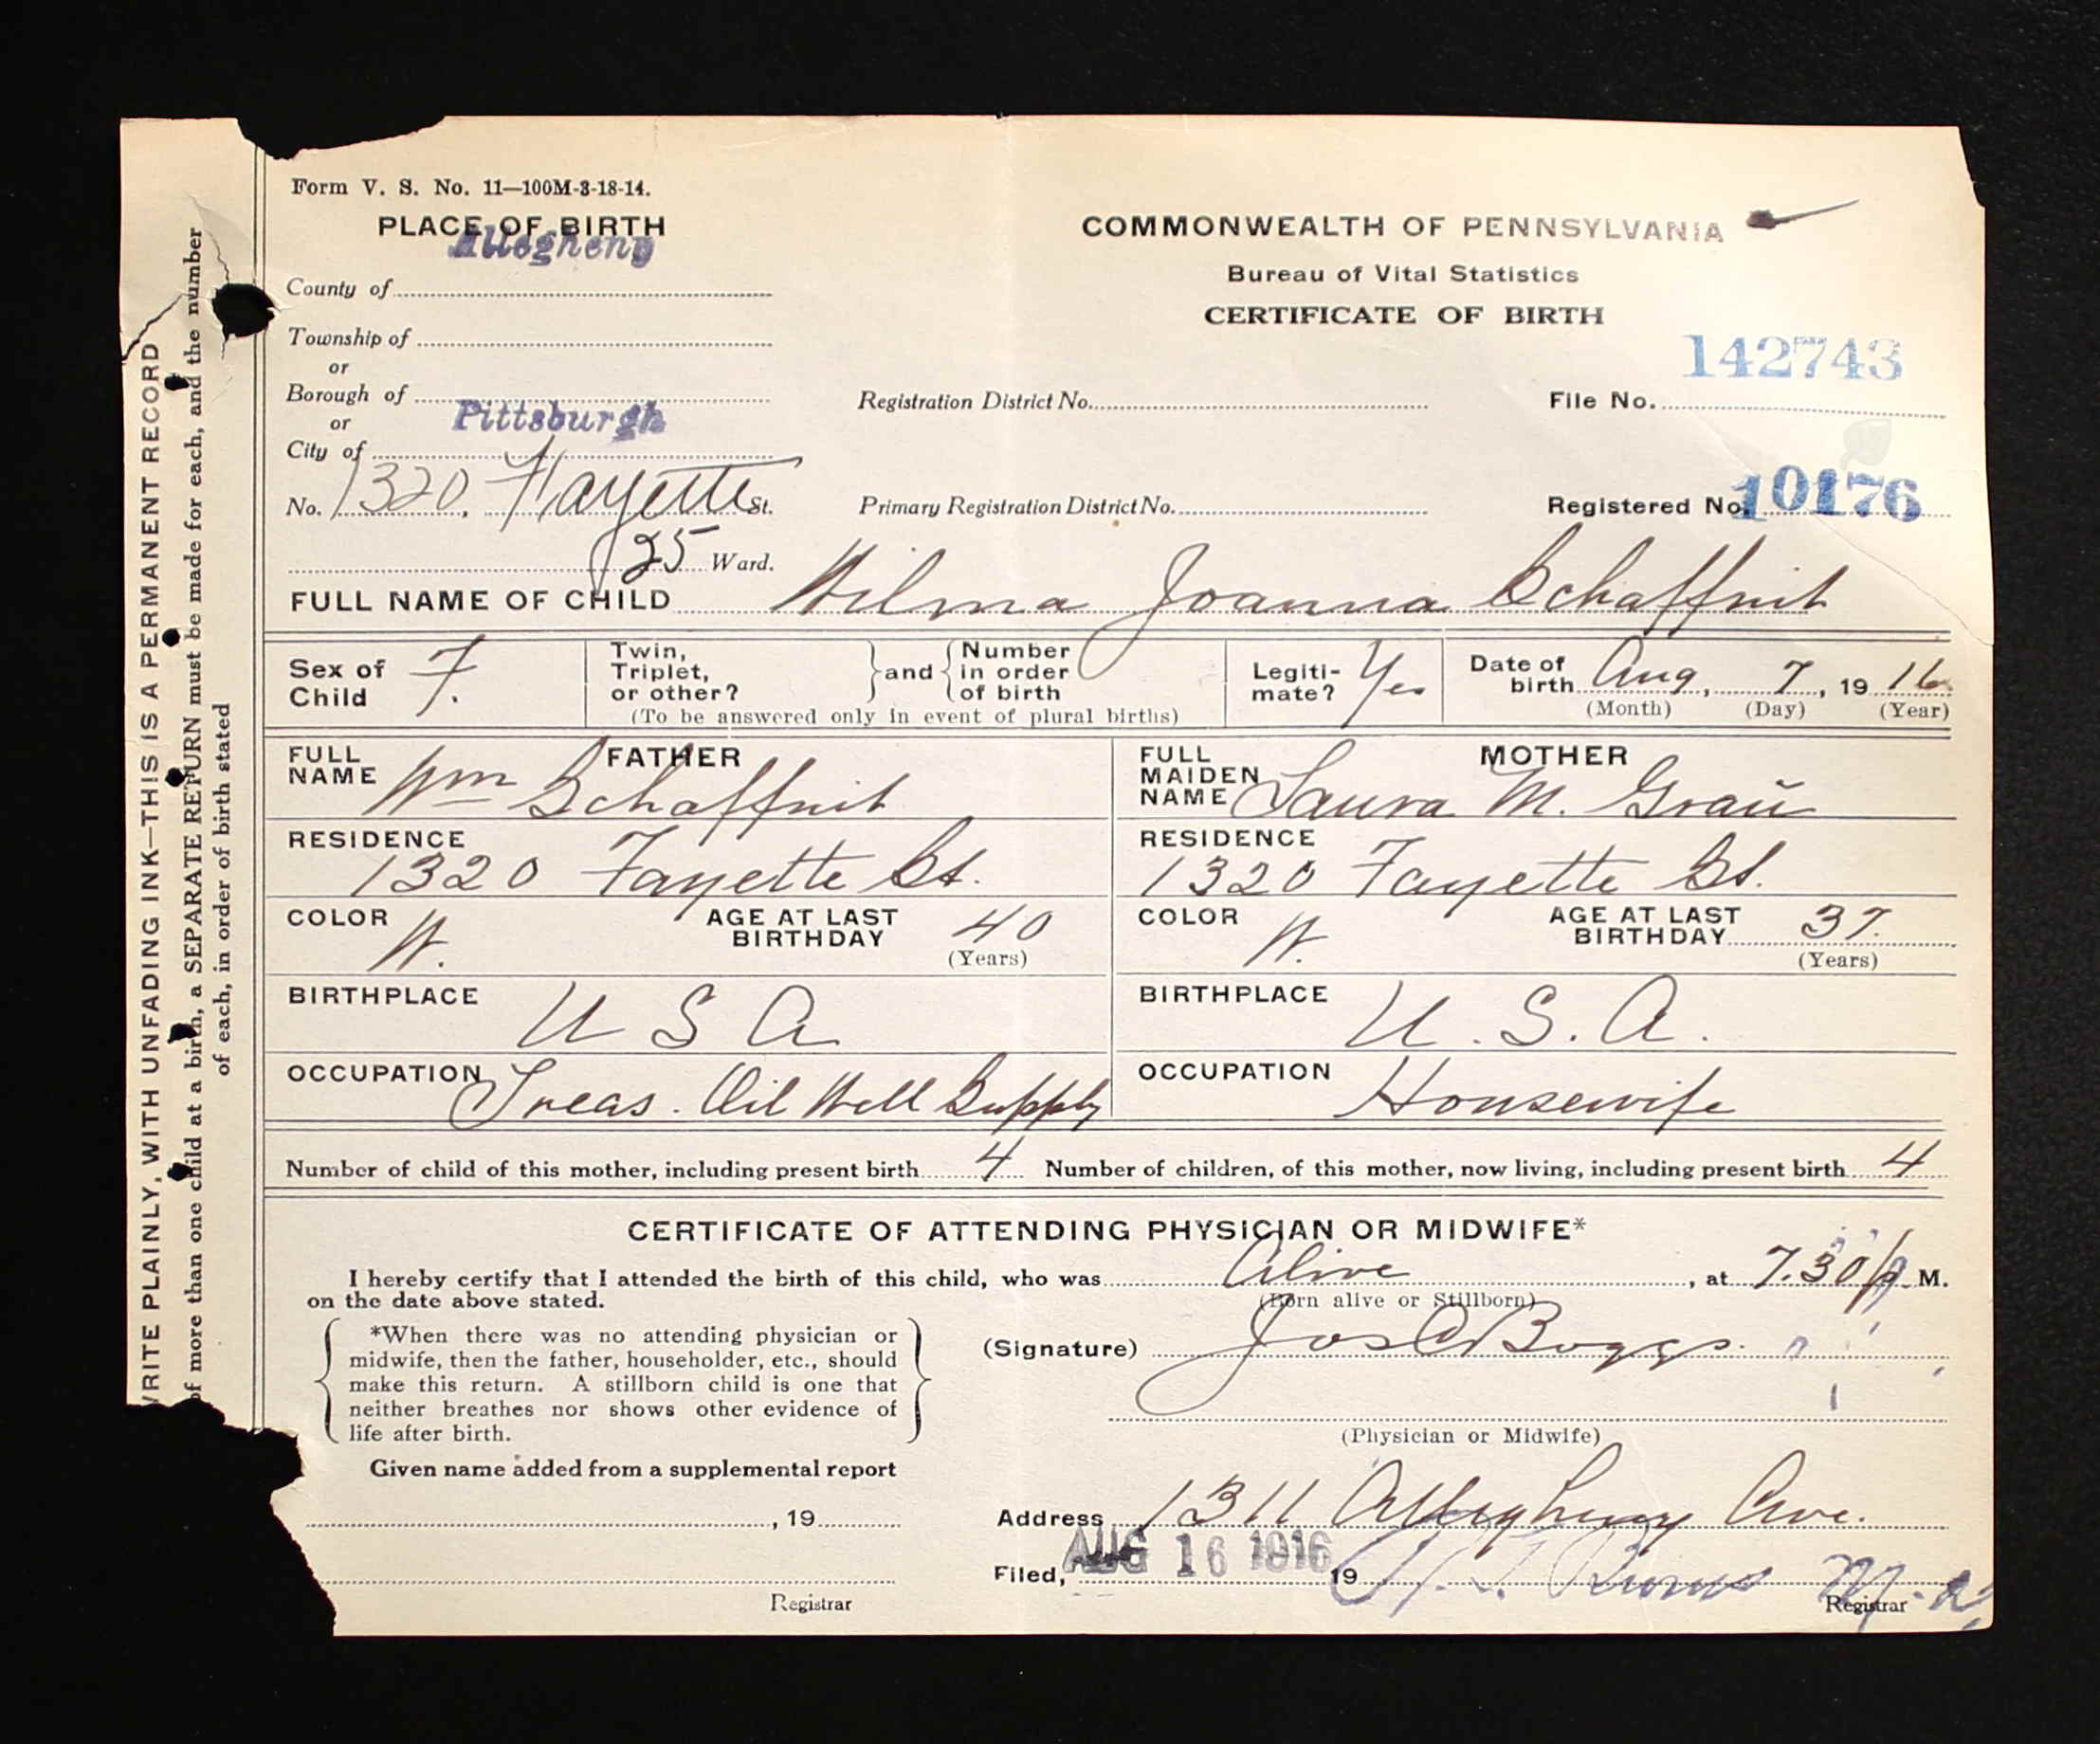 WRITE PLAINLY, WITH UNFADING INK—THIS IS A PERMANENT RECORD
of more than one child at a birth, a SEPARATE RETURN must be made for each, and the number
of each, in order of birth stated
Form V. S. No. 11—100M-3-18-14.
PLACE OF BIRTH
Allegheny
County of
Township of
or
Borough of
or
Pittsburgh
City of
No. 1320, Fayette St.
25 Ward.
COMMONWEALTH OF PENNSYLVANIA
Bureau of Vital Statistics
CERTIFICATE OF BIRTH
142743
Registration District No. File No.
Primary Registration District No. Registered No. 10176
FULL NAME OF CHILD Wilma Joanna Schaffnit
Sex of Child F.
Twin, Triplet, or other? and Number in order of birth
(To be answered only in event of plural births)
Legitimate? Yes
Date of birth Aug, 7, 1916
(Month) (Day) (Year)
FATHER
FULL NAME Wm Schaffnit
RESIDENCE
1320 Fayette St.
COLOR W. AGE AT LAST BIRTHDAY 40
(Years)
BIRTHPLACE U S A
OCCUPATION Treas. Oil Well Supply
MOTHER
FULL MAIDEN NAME Laura M. Graŭ
RESIDENCE
1320 Fayette St.
COLOR W. AGE AT LAST BIRTHDAY 37.
(Years)
BIRTHPLACE U. S. A.
OCCUPATION Housewife
Number of child of this mother, including present birth 4 Number of children, of this mother, now living, including present birth 4
CERTIFICATE OF ATTENDING PHYSICIAN OR MIDWIFE*
I hereby certify that I attended the birth of this child, who was Alive, at 7.30 p M.
on the date above stated. (Born alive or Stillborn)
*When there was no attending physician or
midwife, then the father, householder, etc., should
make this return. A stillborn child is one that
neither breathes nor shows other evidence of
life after birth.
Given name added from a supplemental report
, 19
Registrar
(Signature) Jos C Boggs.
(Physician or Midwife)
Address 1311 Allegheny Ave.
Filed, AUG 16 1916 19
Burns M.D.
Registrar